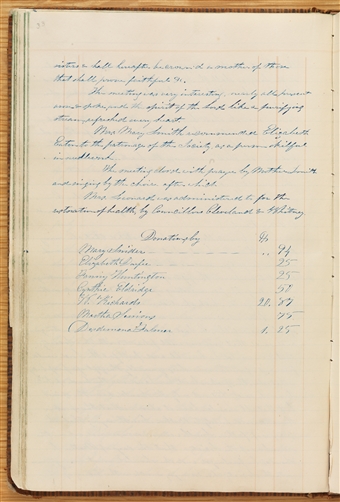 sisters & shall hereafter be crowned a mother of those
that shall prove faithful &c.
The meeting was very interesting, nearly all present
arose & spoke and the spirit of the Lord like a purifying
stream refreshed every heart.
Mrs. Mary Smith recommended Elizabeth
to the patronage of this Society as a person skilful
in needlework.
The meeting closed with prayer by Mother Smith
and singing by the choir after which
Mrs. Leonard was administered to for the
restoration of health, by Councillors Cleveland & Whitney
Donations by
Mary Snider
Elizabeth 25
Huntington 25
Eldridge 50
Richards 20.
Martha 75
Desdemona Fulmer 1. 25